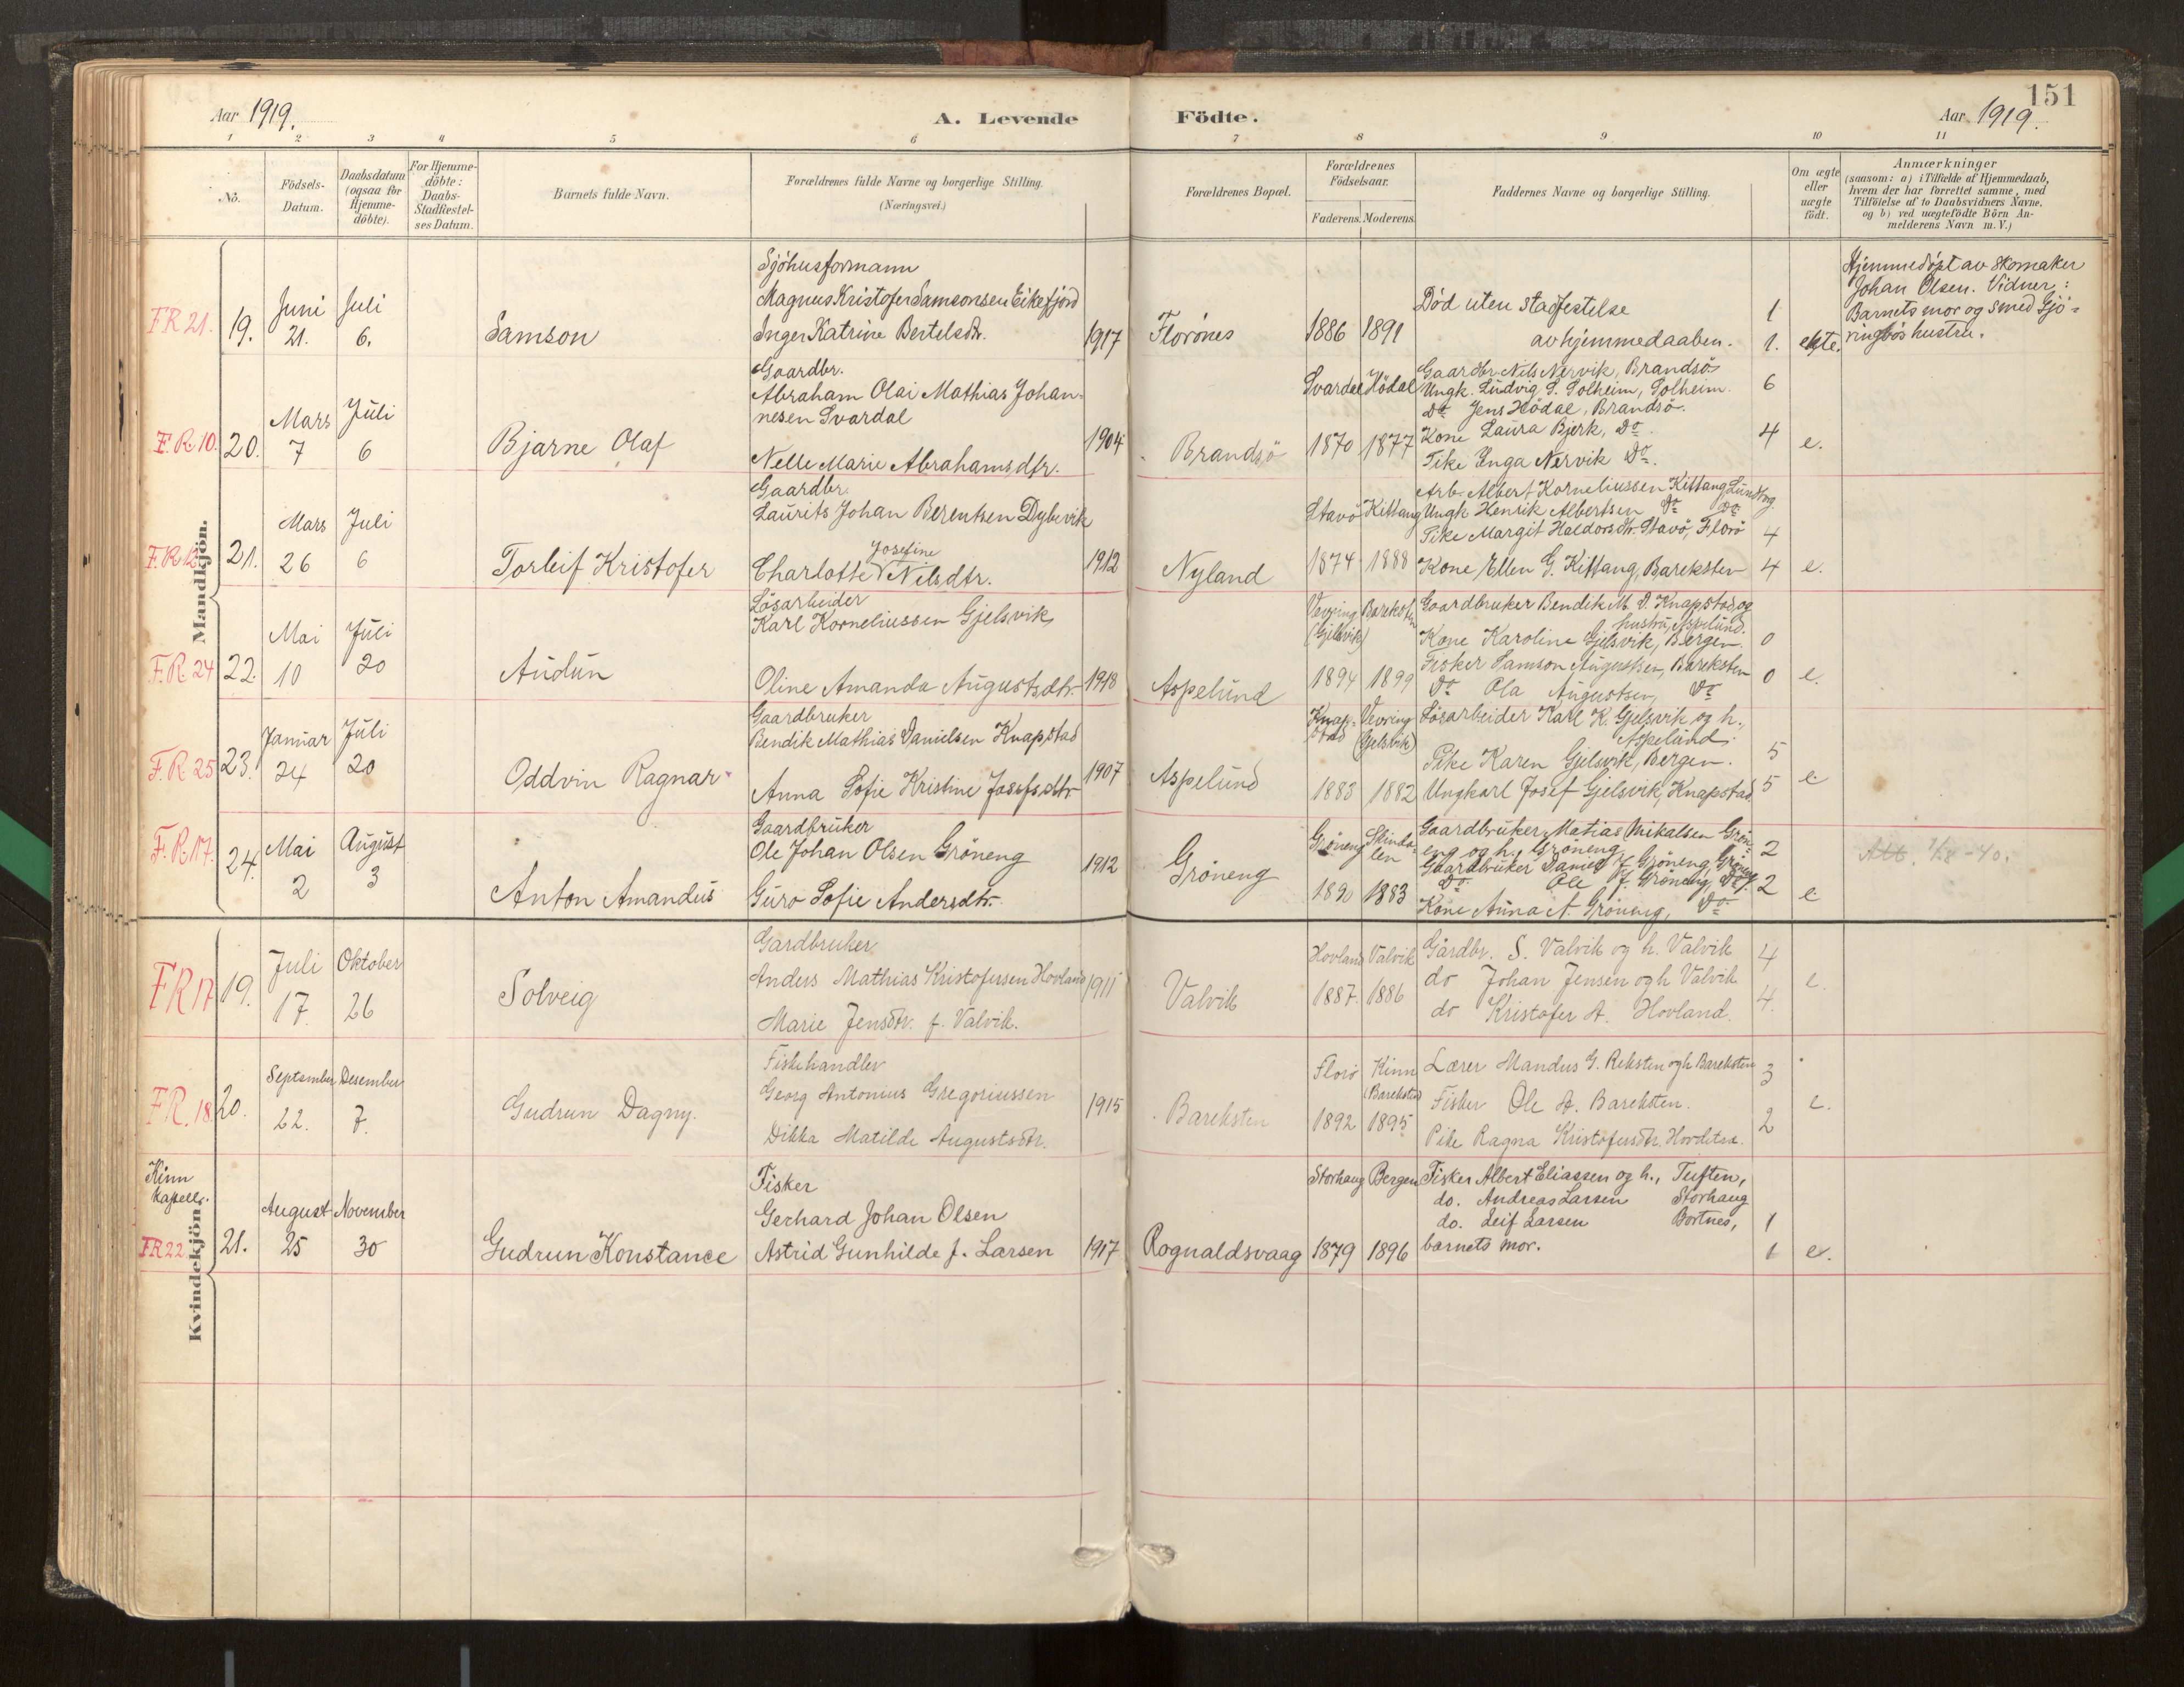 151
Aar 1919.
A. Levende
Födte.
Aar 1919.
1 2 3 4 5 6 7 8 9 10 11
No.
Födsels-
Datum.
Daabsdatum
(ogsaa for
Hjemme-
döbte).
For Hjemme-
döbte:
Daabs-
Stadfæstel-
ses Datum.
Barnets fulde Navn.
Forældrenes fulde Navne og borgerlige Stilling.
(Næringsvei.)
Forældrenes Bopæl.
Forældrenes
Födselsaar.
Faderens. Moderens.
Faddernes Navne og borgerlige Stilling.
Om ægte
eller
uægte
födt.
Anmærkninger
(saasom: a) i Tilfælde af Hjemmedaab,
hvem der har forrettet samme, med
Tilföielse af to Daabsvidners Navne,
og b) ved uægtefödte Börn An-
melderens Navn m. V.)
Mandkjön.
FR 21.
19.
Juni
21.
Juli
6.
Samson
Sjöhusformann
Magnus Kristofer Samsonsen Eikefjord
Inger Katrine Bertelsdtr.
1917
Florönes
1886 1891
Död uten stadfestelse
av hjemmedaaben.
1
1.
ekte.
Hjemmedöpt av skomaker
Johan Olsen. Vidner:
Barnets mor og smed Gjö-
ringbös hustru.
F.R. 10.
20.
Mars
7
Juli
6
Bjarne Olaf
Gaardbr.
Abraham Olai Mathias Johan-
nesen Svardal
Nelle Marie Abrahamsdtr.
1904
Brandsö
Svardal Hödal
1870 1877
Gaardbr. Nils Nervik, Brandsö
Ungk. Ludvig S. Solheim, Solheim.
Do Jens Hödal, Brandsö.
Kone Laura Bjerk, Do.
Pike Inga Nervik Do.
6
4
e.
F.R. 12
21.
Mars
26
Juli
6
Torleif Kristofer
Gaardbr.
Laurits Johan Berentsen Dybevik
Josefine
Charlotte Nilsdtr.
1912
Nyland
Stavö Kittang
1874 1888
Arb. Albert Korneliussen Kittang, Lundtog
Ungk Henrik Albertsen Do Do
Pike Margit Haldorsdtr. Stavö, Florö
Kone Ellen G. Kittang, Bareksten
4
4
e.
F.R. 24
22.
Mai
10
Juli
20
Audun
Lösarbeider
Karl Korneliussen Gjelsvik
Oline Amanda Augustsdtr.
1918
Aspelund
Vevring Bareksten
(Gjelsvik)
1894 1899
Gaardbruker Bendik M. D. Knapstad og
hustru, Aspelund.
Kone Karoline Gjelsvik, Bergen.
Fisker Samson Augustsen, Bareksten
Do Ola Augustsen, Do
0
0
e.
F.R. 25
23.
Januar
24
Juli
20
Oddvin Ragnar
Gaardbruker
Bendik Mathias Danielsen Knapstad
Anna Sofie Kristine Josefsdtr
1907
Aspelund
Knap- Vevring
stad (Gjelsvik)
1883 1882
Lösarbeider Karl K. Gjelsvik og h.,
Aspelund.
Pike Karen Gjelsvik, Bergen.
Ungkarl Josef Gjelsvik, Knapstad
5
5
e
F.R. 17.
24.
Mai
2
August
3
Anton Amandus
Gaardbruker
Ole Johan Olsen Gröneng
Guro Sofie Andersdtr.
1912
Gröneng
Gröneng
1890 1883
Gaardbruker Matias Mikalsen Grön-
eng og h., Gröneng
Gaardbruker Daniel J. Gröneng, Gröneng
Do Ole J. Gröneng, Do
Kone Anna A. Gröneng, Do
2
2
e
Att. 1/8-40.
Kvindekjön.
FR 17
19.
Juli
17.
Oktober
26
Solveig
Gardbruker
Anders Mathias Kristofersen Hovland
Marie Jensdtr. f. Valvik.
1911
Valvik
Hovland Valvik
1887. 1886
Gårdbr. S. Valvik og h. Valvik
do Johan Jensen og h Valvik
do Kristofer A. Hovland.
4
4.
e.
FR. 18.
20.
September
22.
Desember
7.
Gudrun Dagny.
Fiskehandler
Georg Antonius Gregoriussen
Dikka Matilde Augustsdtr.
1915
Bareksten
Florö Kinn
(Bareksten)
1892 1895
Lærer Mandus G. Reksten og h Bareksten
Fisker Ole A. Bareksten.
Pike Ragna Kristofersdtr.
3
2
e.
Kinn
kapell.
FR 22.
21.
August
25
November
30
Gudrun Konstance
Fisker
Gerhard Johan Olsen
Astrid Gunhilde f. Larsen
1917
Rognaldsvaag
Storhaug Bergen
1879 1896
Fisker Albert Eliassen og h., Tuften,
do. Andreas Larsen Storhaug
do. Leif Larsen Bortnes,
barnets mor.
1
1
e.